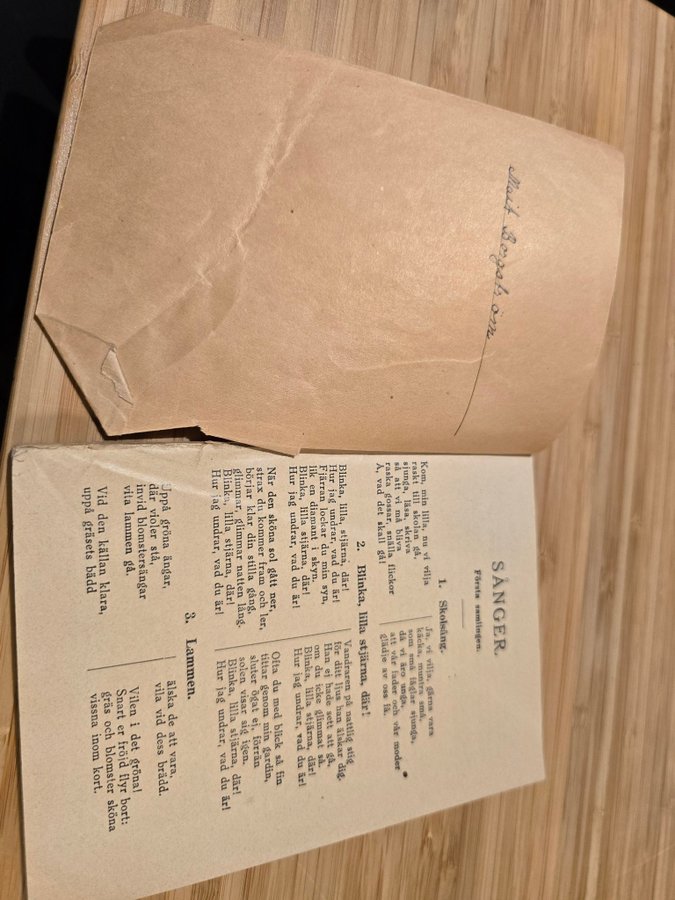 Mait Bergström
SÅNGER.
Första samlingen.
1. Skolsång.
Kom, min lilla, nu vi vilja
raskt till skolan gå,
sjunga, läsa, skriva
så att vi må bliva
raska gossar, snälla flickor
Å, vad det skall gå!
Ja, vi vilja, gärna vara
käcka, muntra små,
som små fåglar sjunga,
då vi äro unga,
att vår fader och vår moder
glädje av oss få.
2. Blinka, lilla stjärna, där!
Blinka, lilla, stjärna, där!
Hur jag undrar, vad du är!
Fjärran lockar du min syn,
lik en diamant i skyn.
Blinka, lilla stjärna, där!
Hur jag undrar, vad du är!
När den sköna sol gått ner,
strax du kommer fram och ler,
börjar klar din stilla gång,
glimmar, glimmar natten lång.
Blinka, lilla stjärna, där!
Hur jag undrar, vad du är!
Vandraren på nattlig stig
för ditt ljus han älskar dig.
Han ej hade sett att gå,
om du icke glimmat så.
Blinka, lilla stjärna, där!
Hur jag undrar, vad du är!
Ofta du med blick så fin
tittar genom min gardin,
sluter ögat ej, förrän
solen visar sig igen.
Blinka, lilla stjärna, där!
Hur jag undrar, vad du är!
3. Lammen.
Uppå gröna ängar,
där violer stå,
invid blomstersängar
vita lammen gå.
Vid den källan klara,
uppå gräsets bädd
älska de att vara,
vila vid dess brädd.
Vilen i det gröna!
Snart er fröjd flyr bort:
gräs och blomster sköna
vissna inom kort.